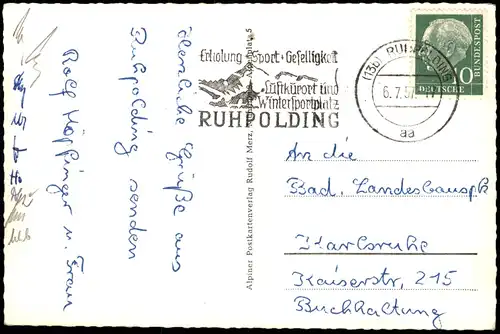 Herzliche Grüße aus
Ruhpolding senden
Rolf Höpfinger u. Frau
Erholung · Sport · Geselligkeit
Luftkurort und
Wintersportplatz
RUHPOLDING
(13b) RUHPOLDING
6.7.57
aa
10
DEUTSCHE
BUNDESPOST
Alpiner Postkartenverlag Rudolf Merz,
An die
Bad. Landesbausp
Karlsruhe
Kaiserstr. 215
Buchhaltung